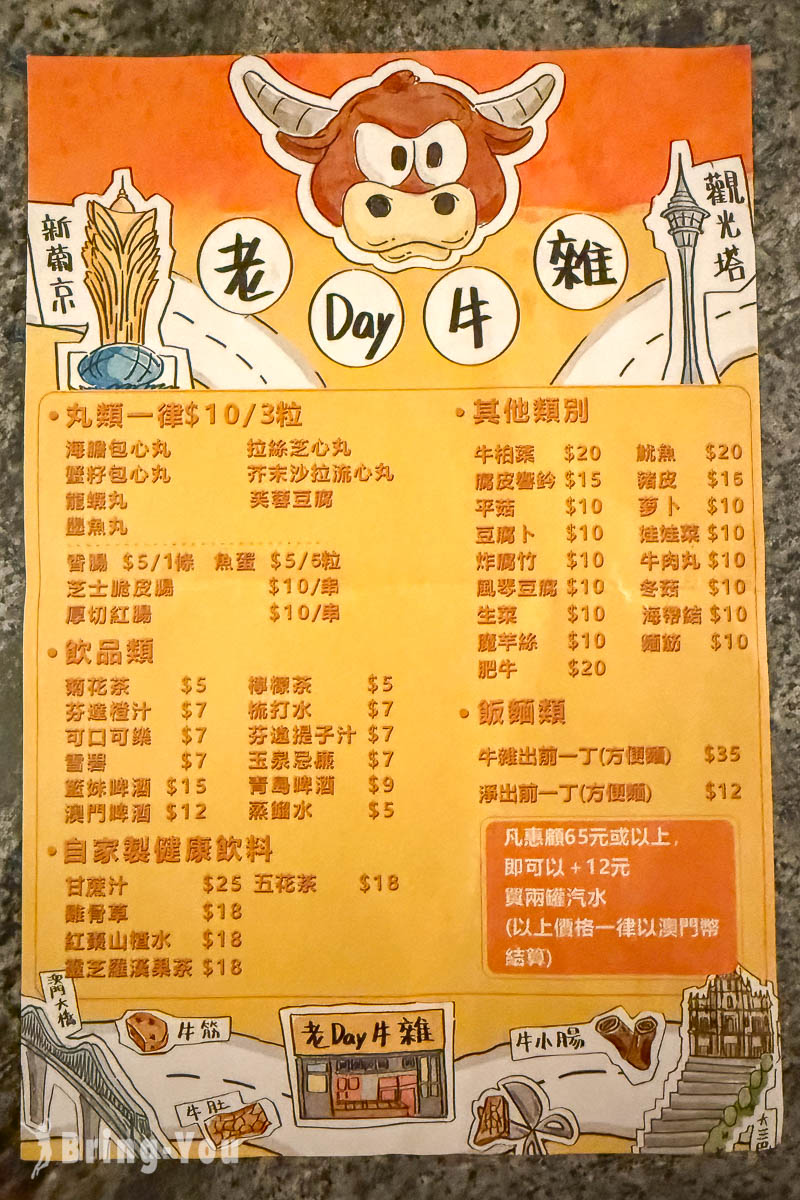 新葡京
觀光塔
老 Day 牛 雜
•丸類一律$10/3粒
海膽包心丸 拉絲芝心丸
蟹籽包心丸 芥末沙拉流心丸
龍蝦丸 芙蓉豆腐
墨魚丸
香腸 $5/1條 魚蛋 $5/5粒
芝士脆皮腸 $10/串
厚切紅腸 $10/串
•飲品類
菊花茶 $5 檸檬茶 $5
芬達橙汁 $7 梳打水 $7
可口可樂 $7 芬達提子汁 $7
雪碧 $7 玉泉忌廉 $7
藍妹啤酒 $15 青島啤酒 $9
澳門啤酒 $12 蒸餾水 $5
•自家製健康飲料
甘蔗汁 $25 五花茶 $18
雞骨草 $18
紅棗山楂水 $18
靈芝羅漢果茶 $18
•其他類別
牛柏葉 $20 魷魚 $20
腐皮響鈴 $15 豬皮 $15
平菇 $10 萝卜 $10
豆腐卜 $10 娃娃菜 $10
炸腐竹 $10 牛肉丸 $10
風琴豆腐 $10 冬菇 $10
生菜 $10 海帶結 $10
魔芋絲 $10 麵筋 $10
肥牛 $20
•飯麵類
牛雜出前一丁(方便麵) $35
淨出前一丁(方便麵) $12
凡惠顧65元或以上,
即可以+12元
買兩罐汽水
(以上價格一律以澳門幣
結算)
澳門大橋
牛筋
牛肚
老Day牛雜
牛小腸
大三巴
Bring-You